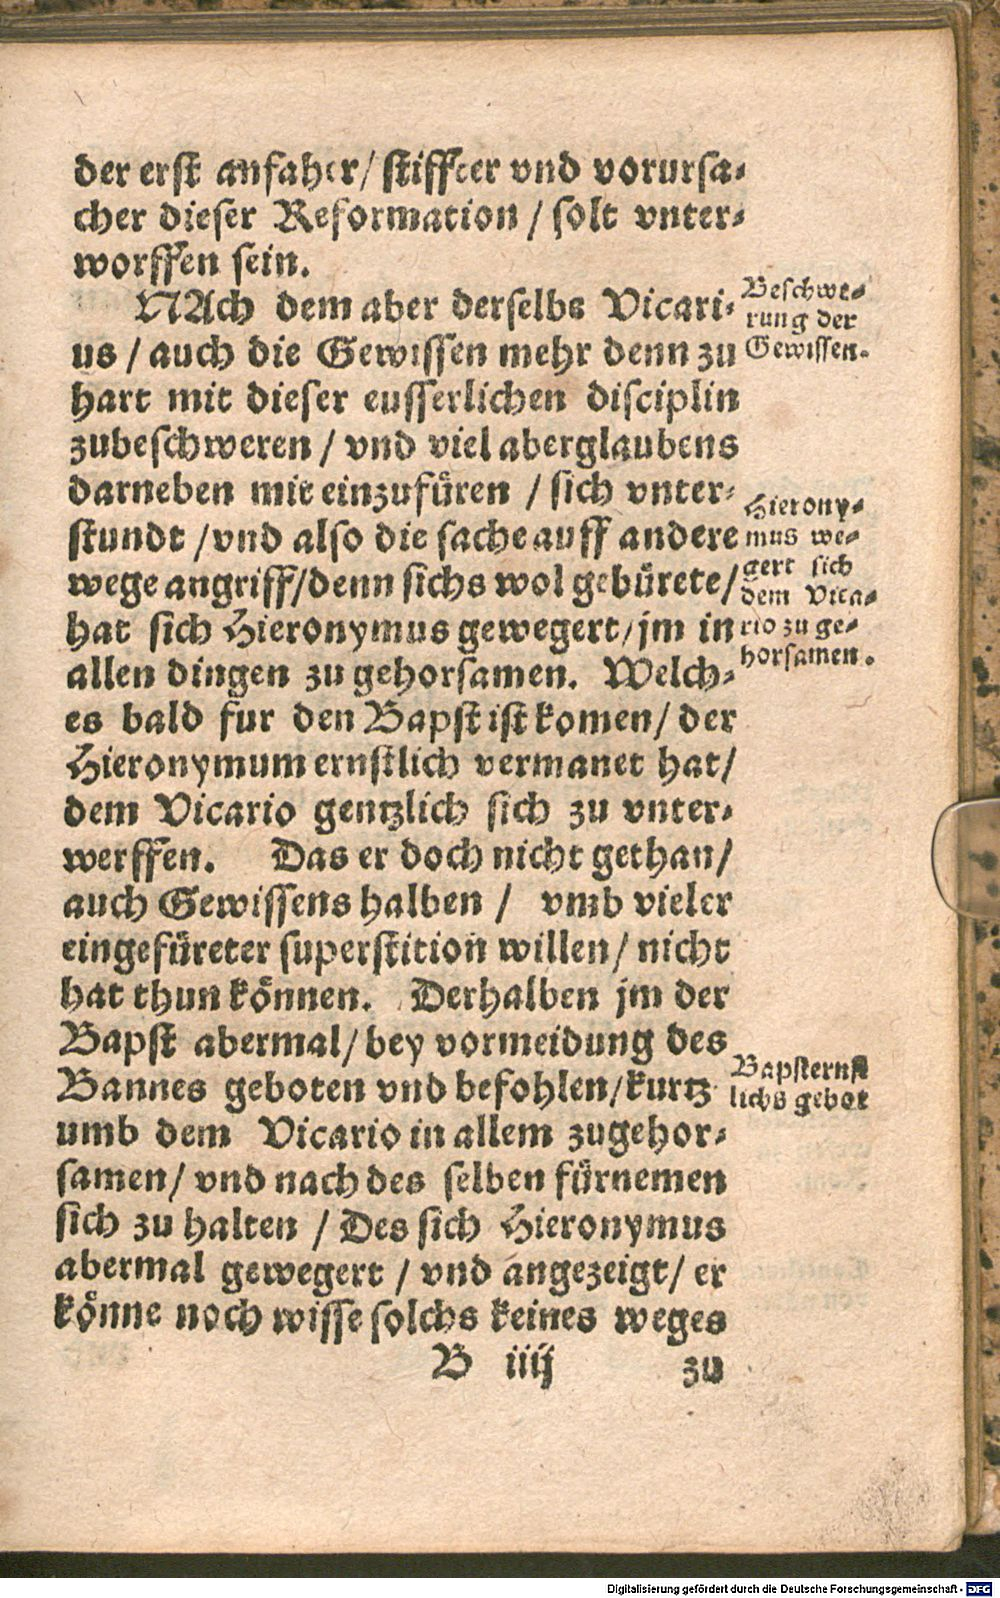 der erst anfaher / stiffter vnd vorursa-
cher dieser Reformation / solt vnter-
worffen sein.
NAch dem aber derselbe Vicari-
us / auch die Gewissen mehr denn zu
hart mit dieser eusserlichen disciplin
zubeschweren / vnd viel aberglaubens
darneben mit einzufüren / sich vnter-
stundt / vnd also die sache auff andere
wege angriff / denn sichs wol gebürete /
hat sich Hieronymus gewegert / jm in
allen dingen zu gehorsamen. Welch-
es bald fur den Bapst ist komen / der
Hieronymum ernstlich vermanet hat /
dem Vicario gentzlich sich zu vnter-
werffen. Das er doch nicht gethan /
auch Gewissens halben / vmb vieler
eingefüreter superstition willen / nicht
hat thun können. Derhalben jm der
Bapst abermal / bey vormeidung des
Bannes geboten vnd befohlen / kurtz
umb dem Vicario in allem zugehor-
samen / vnd nach des selben fürnemen
sich zu halten / Des sich Hieronymus
abermal gewegert / vnd angezeigt / er
könne noch wisse solchs keines weges
B iiij zu
Beschwe-
rung der
Gewissen.
Hierony-
mus we-
gert sich
dem Vica-
rio zu ge-
horsamen.
Bapst ernst
lichs gebot
Digitalisierung gefördert durch die Deutsche Forschungsgemeinschaft - DFG